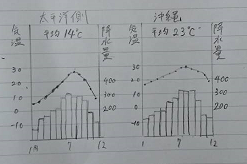 太平洋側
平均14℃
気温
降水量
30
20
10
0
-10
400
300
200
1月
7
12
沖縄
平均23℃
気温
降水量
30
20
10
0
-10
400
300
200
1
7
12